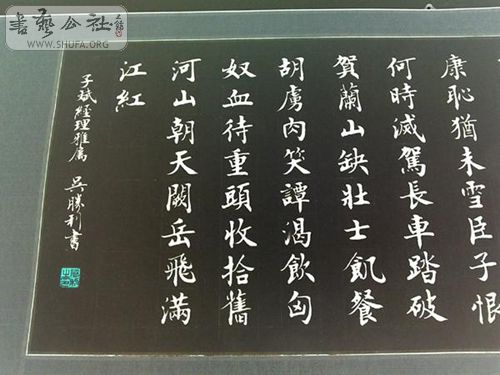 康恥猶未雪臣子恨
何時滅駕長車踏破
賀蘭山缺壯士飢餐
胡虜肉笑譚渴飲匈
奴血待重頭收拾舊
河山朝天闕岳飛滿
江紅
子斌經理雅屬
吳勝利書
書藝公社
WWW.SHUFA.ORG